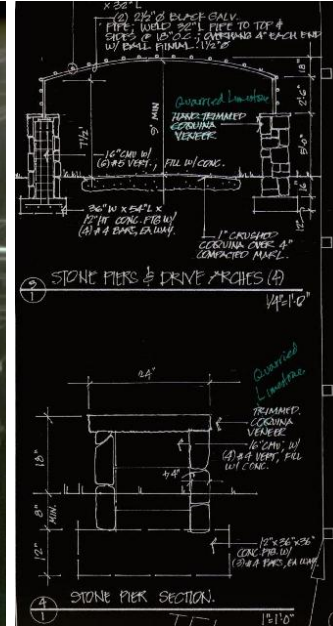 x 32"L
(2) 2½"Ø BLACK GALV.
PIPE, WELD 32"L PIPE TO TOP &
SIDES @ 18"O.C., OVERHANG 4" EACH END
W/ BALL FINIAL. 1½"Ø
18"
2'-6"
Quarried Limestone
HAND-TRIMMED
COQUINA
VENEER
7½'
9' MIN
5'-0"
16" CMU W/
(6) #5 VERT., FILL W/ CONC.
16"
12"
36"W x 54"L x
12"HT CONC. FTG W/
(4) #4 BARS, EA WAY.
1" CRUSHED
COQUINA OVER 4"
COMPACTED MARL.
3
1
STONE PIERS & DRIVE ARCHES (4)
¼"=1'-0"
24"
Quarried
Limestone
TRIMMED
COQUINA
VENEER
16" CMU W/
(4) #4 VERT, FILL
W/ CONC.
±4"
18"
8"
MIN.
12"
12"x36"x36"
CONC. FTG. W/
(3) #4 BARS, EA WAY
4
1
STONE PIER SECTION.
1"=1'-0"